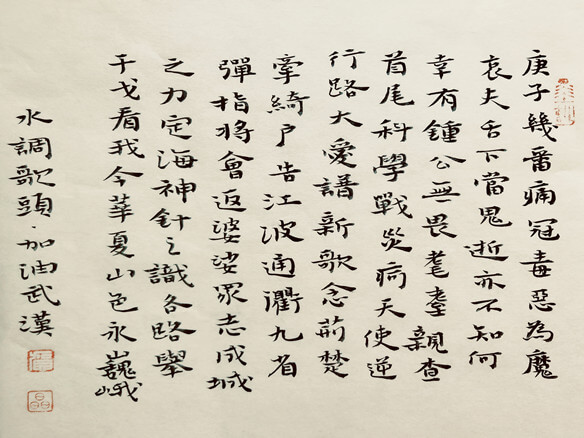 庚子幾番痛冠毒惡為魔
哀夫舌下當鬼逝亦不知何
幸有鍾公無畏耄耋親查
首尾科學戰災病天使逆
行路大愛譜新歌念荊楚
牽綺戶告江波通衢九省
彈指將會返婆娑眾志成城
之力定海神針之識各路舉
干戈看我今華夏山色永巍峨
水調歌頭·加油武漢
晶